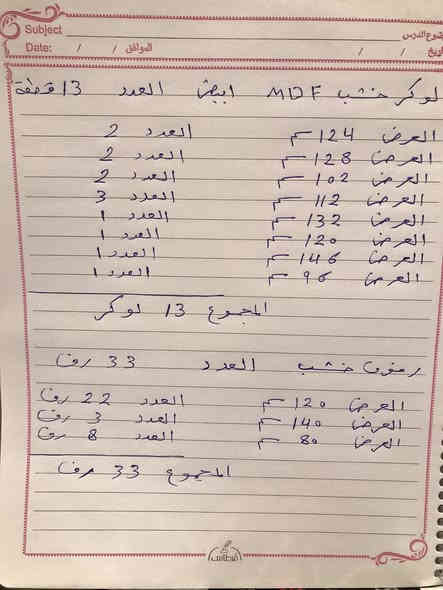 Subject موضوع الدرس
Date: / / الموافق / / التاريخ
لوكر خشب MDF ابيض العدد 13 قطعة
العرض 124 سم العدد 2
العرض 128 سم العدد 2
العرض 102 سم العدد 2
العرض 112 سم العدد 3
العرض 132 سم العدد 1
العرض 120 سم العدد 1
العرض 146 سم العدد 1
العرض 96 سم العدد 1
المجموع 13 لوكر
رفوف خشب العدد 33 رف
العرض 120 سم العدد 22 رف
العرض 140 سم العدد 3 رف
العرض 80 سم العدد 8 رف
المجموع 33 رف